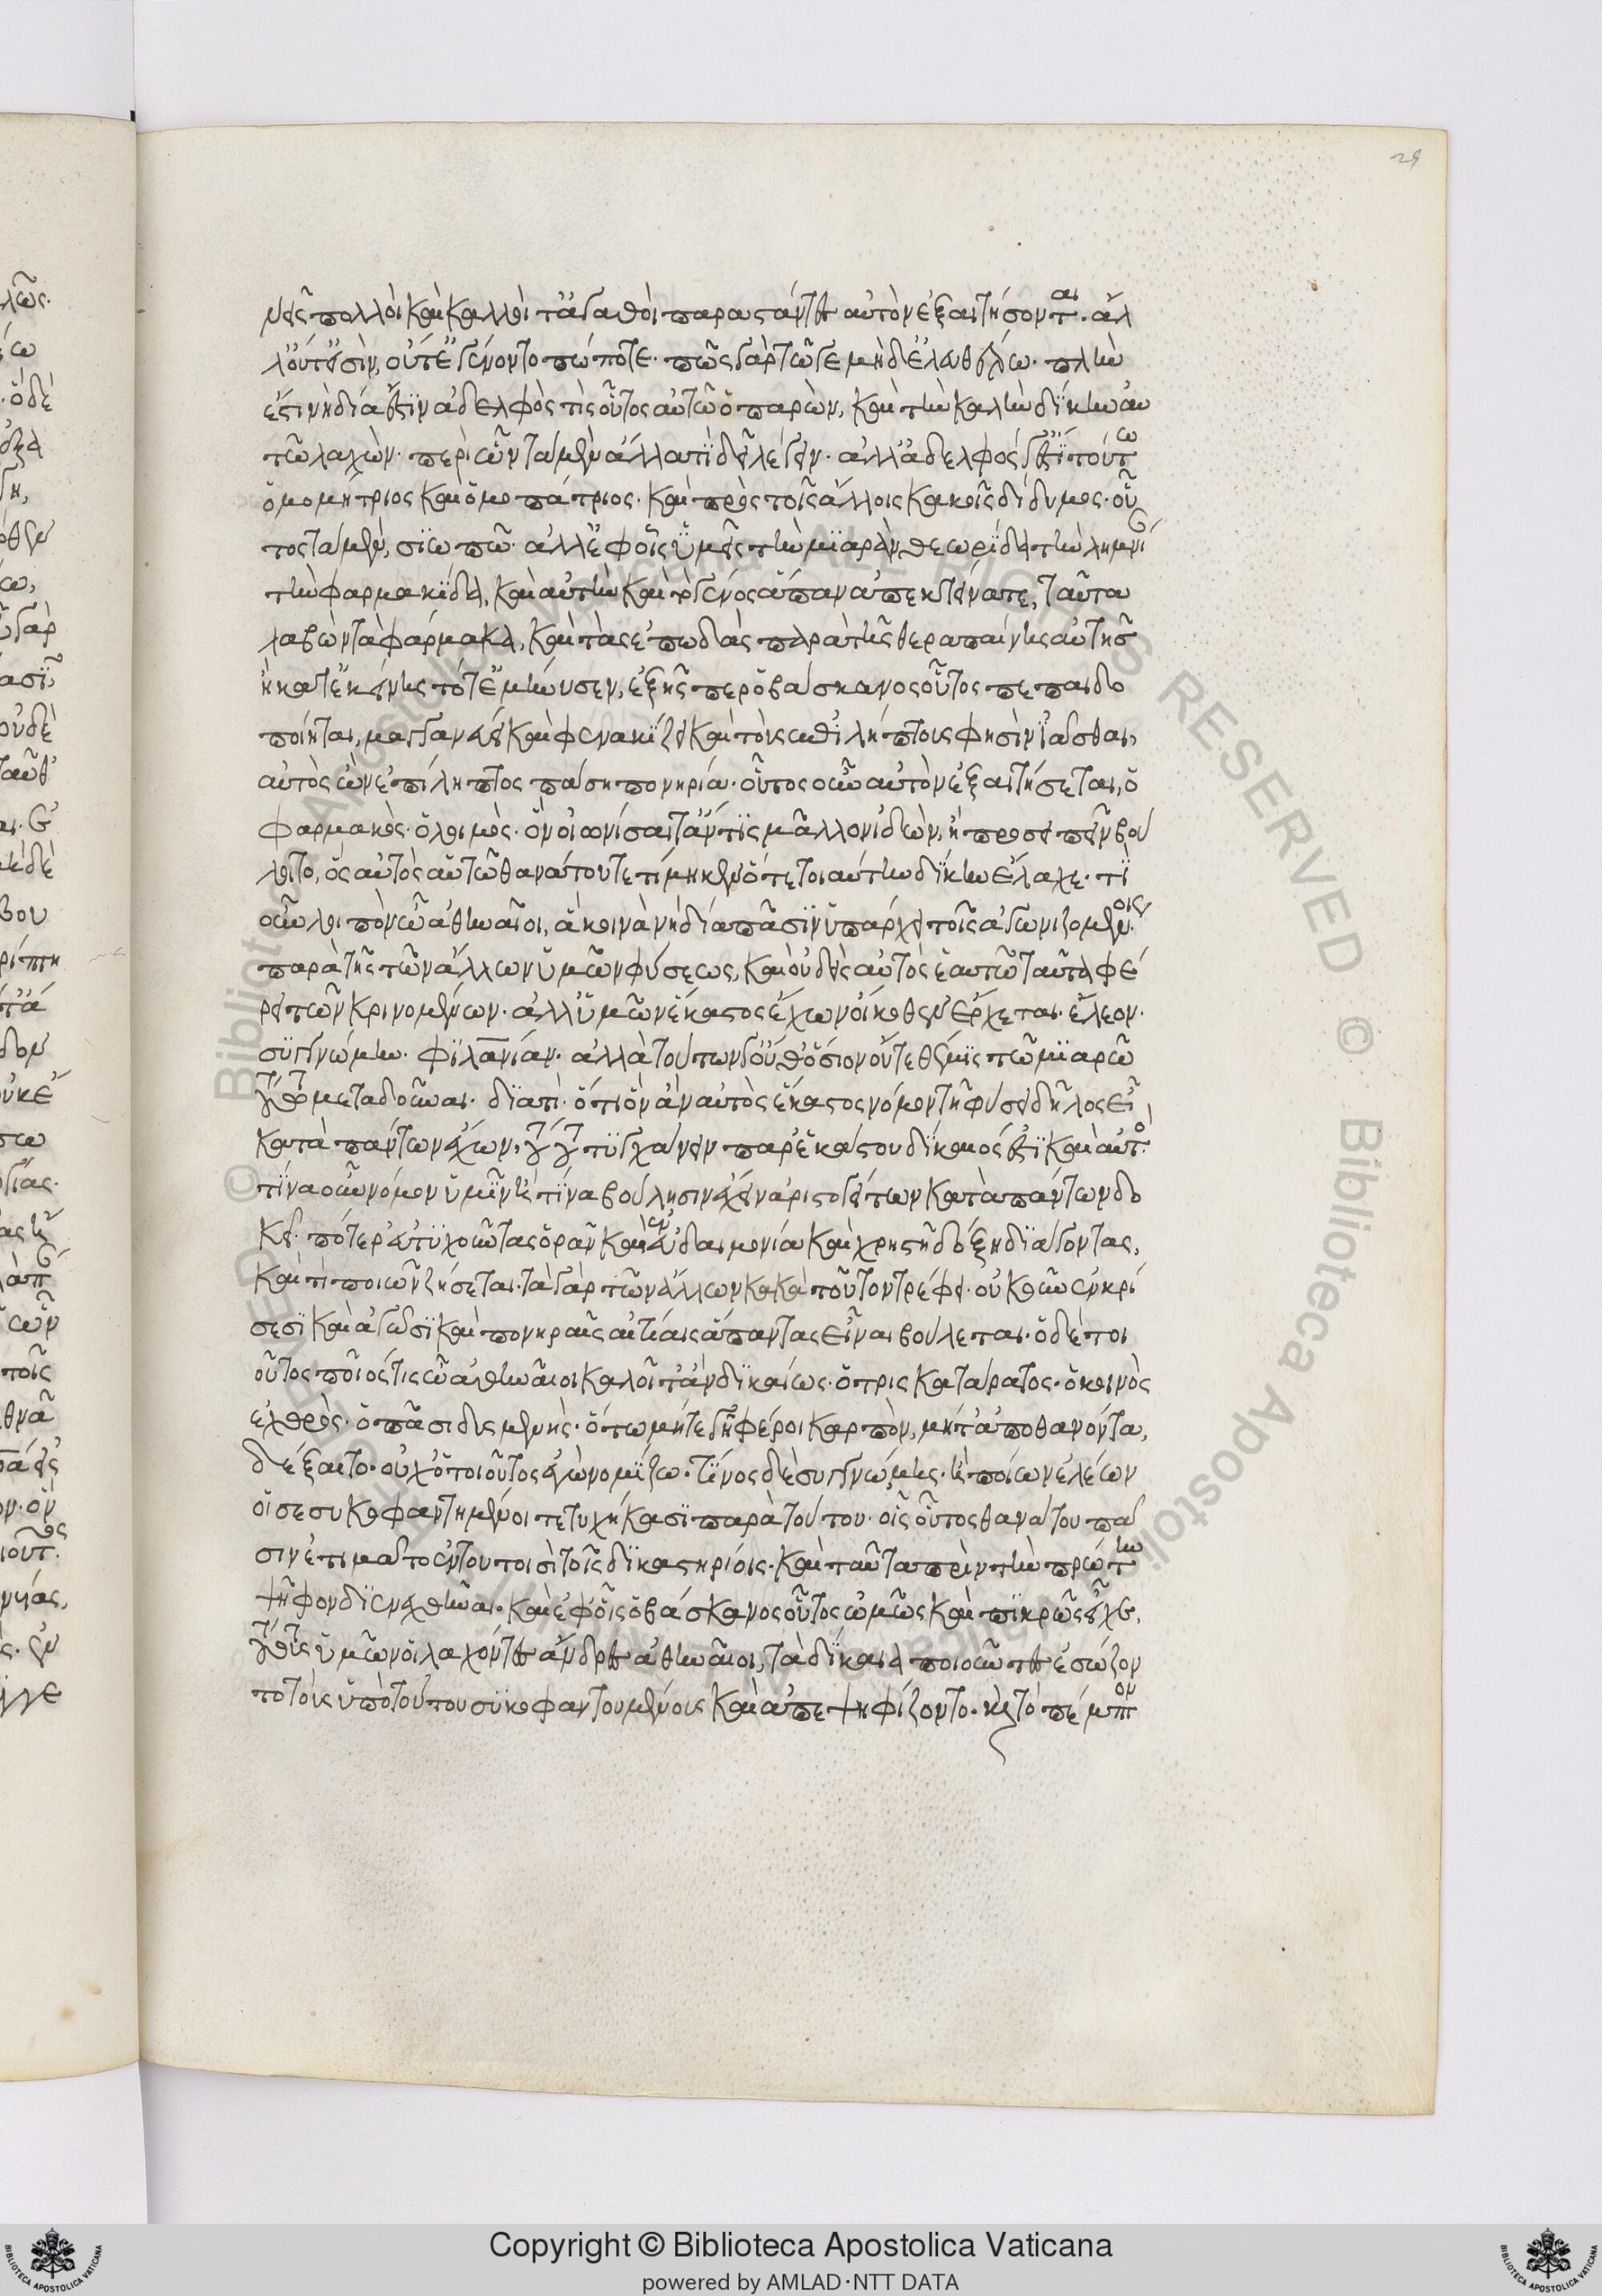 29
γενεῖς πολλοὶ καὶ καλοὶ κἀγαθοὶ παραστάντες αὐτὸν ἐξαιτήσονται. ἀλ
λ' οὔτ' εἰσὶν, οὔτ' ἐγένοντο πώποτε. πῶς γὰρ τῷ γε μηδ' ἐλευθέρῳ. πλὴν
ἔστι νὴ δία ἔστιν ἀδελφός τις οὗτος αὐτῷ ὁ παρὼν, καὶ τὴν καλὴν δίκην αὐ
τῷ λαχών. περὶ ὧν τὰ μὲν ἄλλα τί δεῖ λέγειν. ἀλλ' ἀδελφός ἐστι τούτω
ὁμομήτριος καὶ ὁμοπάτριος. καὶ πρὸς τοῖς ἄλλοις κακοῖς δίδυμος. οὗ
τος τὰ μὲν, σιωπῶ. ἀλλ' ἐφ' οἷς ὑμεῖς τὴν μιαρὰν θεωρίδα τὴν λημνί
τὴν φαρμακίδα, καὶ αὐτὴν καὶ τὸ γένος ἅπαν ἀπεκτείνατε, ταῦτα
λαβὼν τὰ φάρμακα, καὶ τὰς ἐπωδὰς παρὰ τῆς θεραπαίνης αὐτῆς
ἣ κατ' ἐκείνης τότ' ἐμήνυσεν, ἐξ ἧσπερ ὁ βάσκανος οὗτος πεπαιδο
ποίηται, μαγγανεύει καὶ φενακίζει καὶ τοὺς ἐπιλήπτους φησὶν ἰᾶσθαι,
αὐτὸς ὢν ἐπίληπτος πάσῃ πονηρίᾳ. οὗτος οὖν αὐτὸν ἐξαιτήσεται, ὁ
φαρμακὸς. ὁ λοιμὸς. ὃν οἰωνίσαιτ' ἄν τις μᾶλλον ἰδὼν, ἢ προσειπεῖν βού
λοιτο, ὃς αὐτὸς αὑτῷ θανάτου τετίμηκεν ὅτε τοιαύτην δίκην ἔλαχε. τί
οὖν λοιπὸν ὦ ἀθηναῖοι, ἃ κοινὰ νὴ δία πᾶσιν ὑπάρχει τοῖς ἀγωνιζομένοις.
παρὰ τῆς τῶν ἄλλων ὑμῶν φύσεως, καὶ οὐδεὶς αὐτὸς ἑαυτῷ ταῦτα φέ
ρει τῶν κρινομένων. ἀλλ' ὑμῶν ἕκαστος ἔχων οἴκοθεν ἔρχεται. ἔλεον.
συγγνώμην. φιλανίαν. ἀλλὰ τούτων γ' οὔθ' ὅσιον οὔτε θέμις τῷ μιαρῷ
τούτῳ μεταδοῦναι. διατί. ὅτι ὃν ἂν αὐτὸς ἕκαστος νόμον τῇ φύσει δῆλος εἶ
κατὰ πάντων ἔχων, τούτου τυγχάνειν παρ' ἑκάστου δίκαιός ἐστι καὶ αὐτό.
τίνα οὖν νόμον ὑμῖν ἢ τίνα βούλησιν ἔχειν ἀριστογείτων κατὰ πάντων δο
κεῖ. πότερ' εὐτυχοῦντας ὁρᾶν καὶ ἐν εὐδαιμονίᾳ καὶ χρηστῇ δόξῃ διάγοντας,
καὶ τί ποιῶν ζήσεται. τὰ γὰρ τῶν ἄλλων κακὰ τοῦτον τρέφει. οὐκοῦν ἐν κρί
σεσι καὶ ἀγῶσι καὶ πονηραῖς αἰτίαις ἅπαντας εἶναι βούλεται. ὁ δὲ τοι
οὗτος ποῖός τις ὦ ἀθηναῖοι καλοῖτ' ἂν δικαίως. ὁ τρὶς κατάρατος. ὁ κοινὸς
ἐχθρὸς. ὁ πᾶσι δυσμενὴς. ὅτῳ μήτε γῆ φέροι καρπὸν, μήτ' ἀποθανόντα,
δέξαιτο. οὐχ ὁ τοιοῦτος ἐγὼ νομίζω. τίνος δὲ συγγνώμης. ἢ ποίων ἐλέων
οἱ σεσυκοφαντημένοι τετυχήκασι παρὰ τούτου. οἷς οὗτος θανάτου πᾶ
σιν ἐτιμᾶτο ἐν τουτοισὶ τοῖς δικαστηρίοις. καὶ ταῦτα πρὶν τὴν πρώτην
ψῆφον διενεχθῆναι. καὶ ἐφ' οἷς ὁ βάσκανος οὗτος ὠμῶς καὶ πικρῶς εἶχε,
τούτοις ὑμῶν οἱ λαχόντες ἄνδρες ἀθηναῖοι, τὰ δίκαια ποιοῦντες ἔσωζον
το τοὺς ὑπὸ τούτου συκοφαντουμένους καὶ ἀπεψηφίζοντο. καὶ τὸ πέμπτον
Copyright © Biblioteca Apostolica Vaticana
powered by AMLAD·NTT DATA